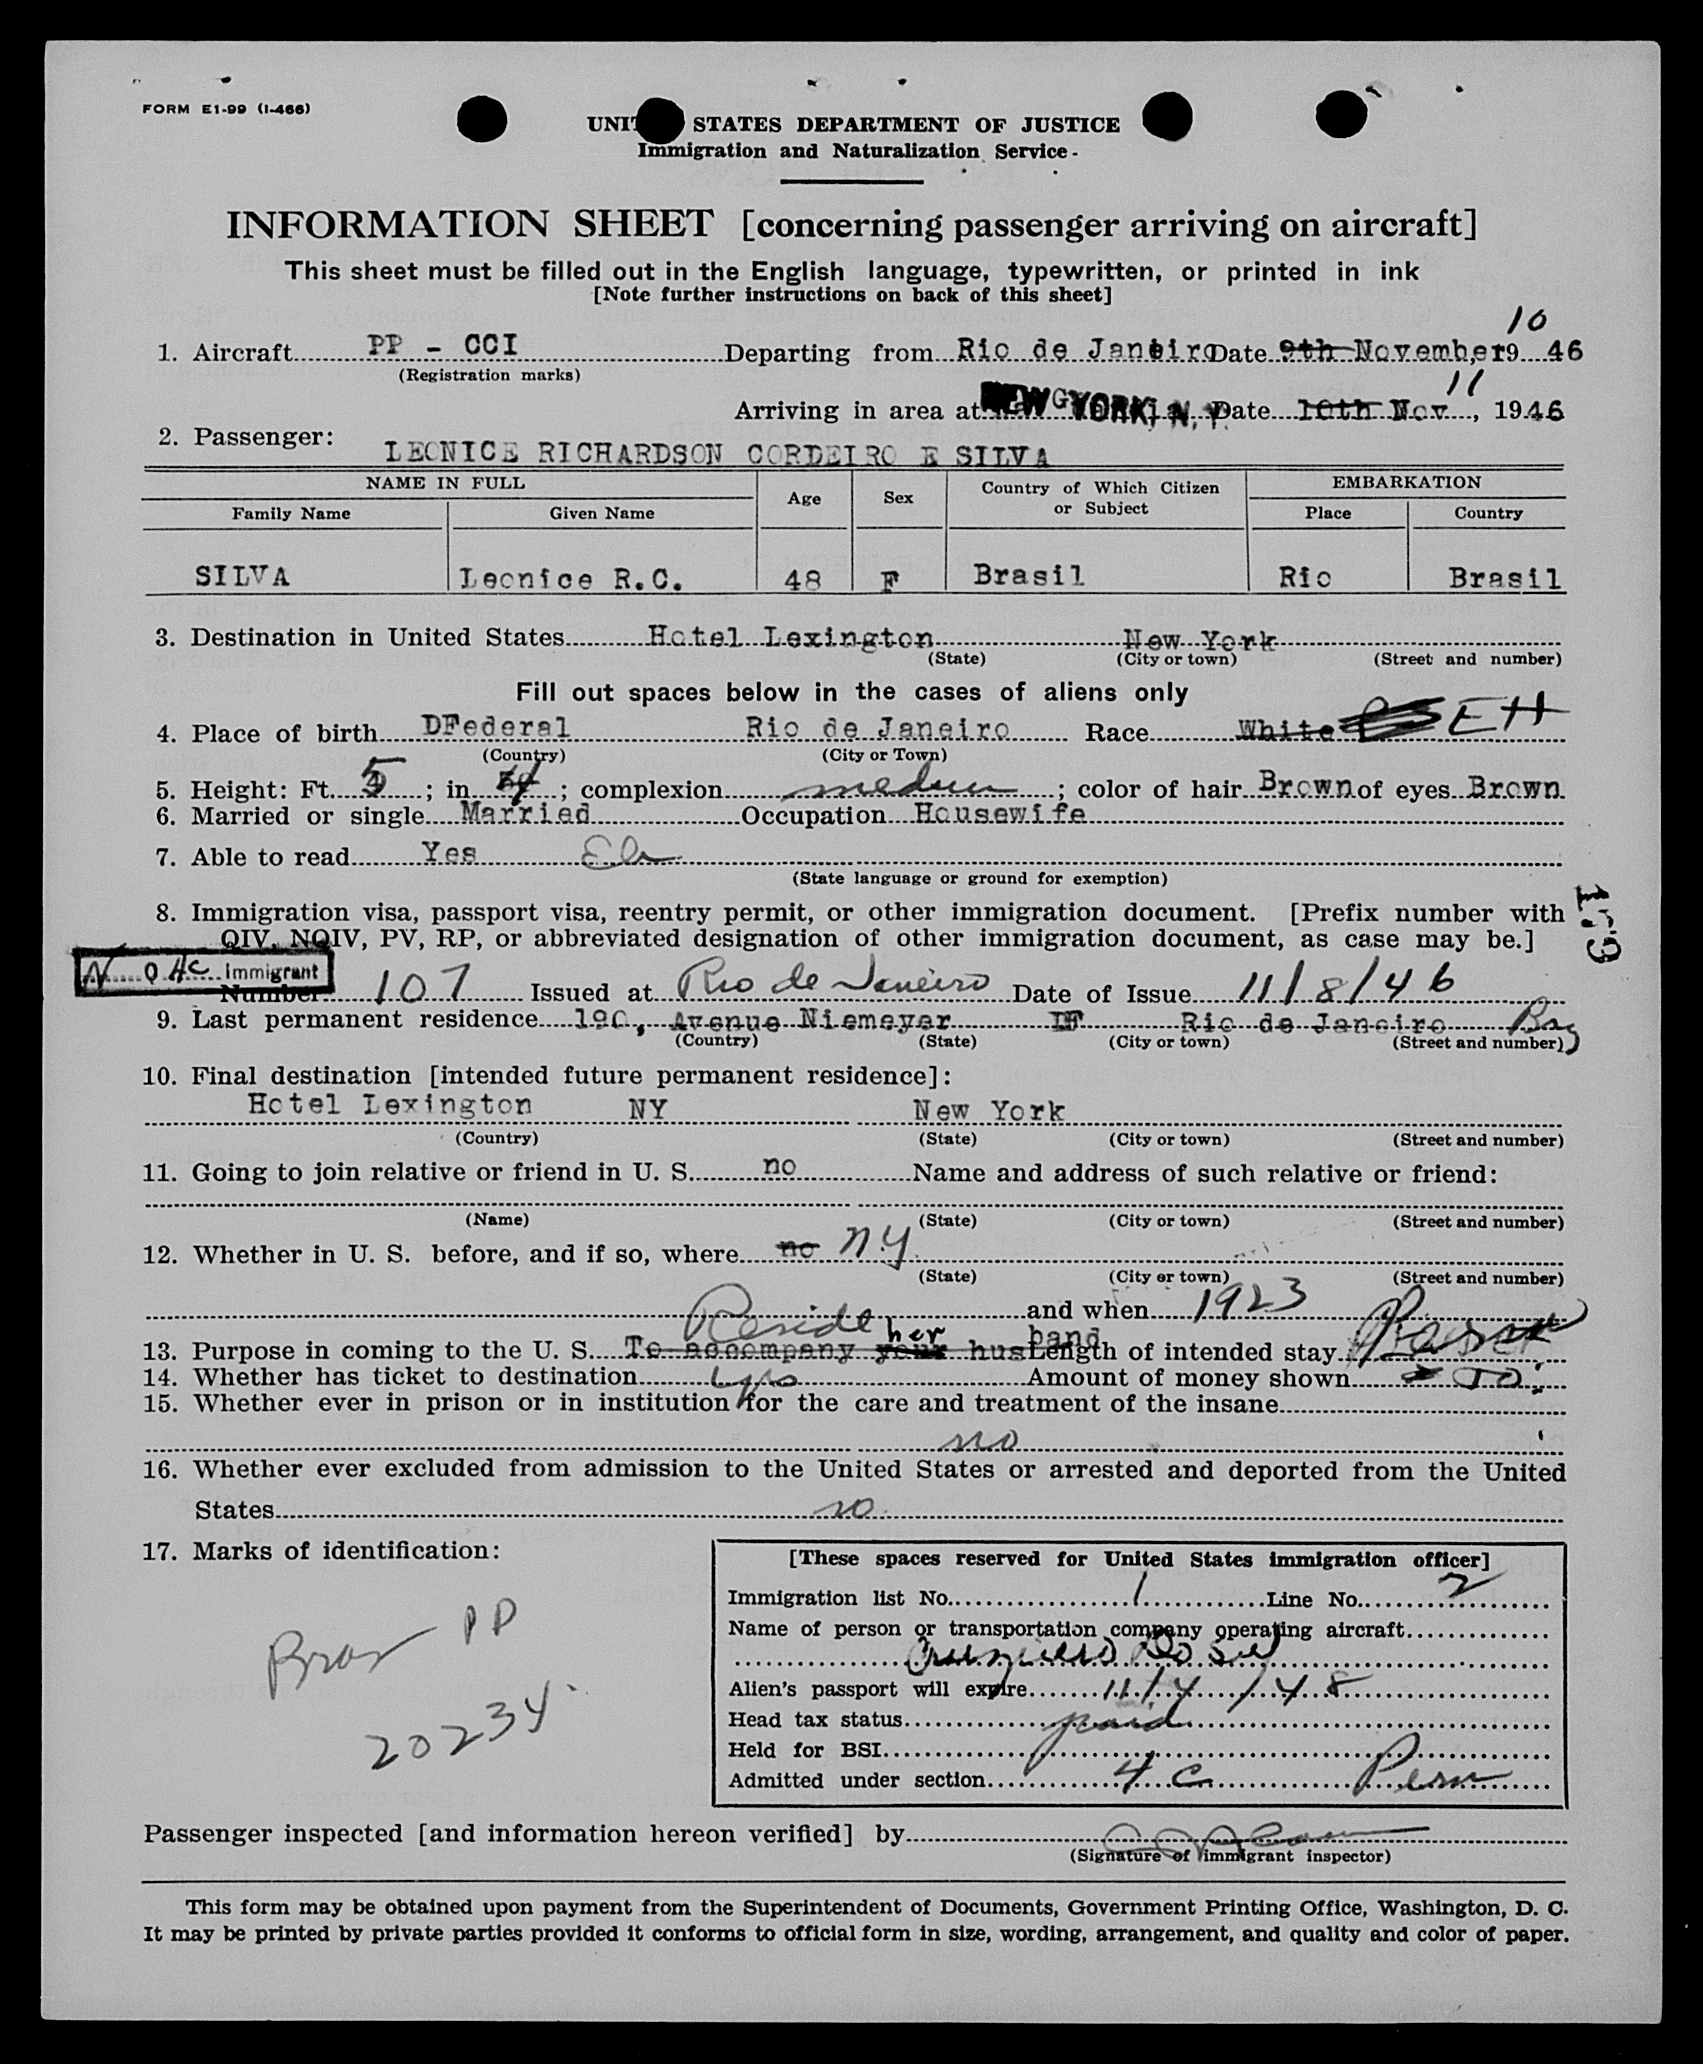 FORM E1-99 (I-466)
UNITED STATES DEPARTMENT OF JUSTICE
Immigration and Naturalization Service
INFORMATION SHEET [concerning passenger arriving on aircraft]
This sheet must be filled out in the English language, typewritten, or printed in ink
[Note further instructions on back of this sheet]
10
1. Aircraft PP - CCI Departing from Rio de Janeiro Date 9th November, 1946
(Registration marks)
11
Arriving in area at NEW YORK, N. Y. Date 10th Nov, 1946
2. Passenger:
LEONICE RICHARDSON CORDEIRO E SILVA
NAME IN FULL Age Sex Country of Which Citizen or Subject EMBARKATION
Family Name Given Name Place Country
SILVA Leonice R.C. 48 F Brasil Rio Brasil
3. Destination in United States Hotel Lexington New York
(State) (City or town) (Street and number)
Fill out spaces below in the cases of aliens only
4. Place of birth DFederal Rio de Janeiro Race White
(Country) (City or Town)
5. Height: Ft. 5; in 4; complexion medium; color of hair Brown of eyes Brown
6. Married or single Married Occupation Housewife
7. Able to read Yes
(State language or ground for exemption)
8. Immigration visa, passport visa, reentry permit, or other immigration document. [Prefix number with
QIV, NQIV, PV, RP, or abbreviated designation of other immigration document, as case may be.]
N Q 4c Immigrant
Number 107 Issued at Rio de Janeiro Date of Issue 11/8/46
9. Last permanent residence 190, Avenue Niemeyer DF Rio de Janeiro
(Country) (State) (City or town) (Street and number)
10. Final destination [intended future permanent residence]:
Hotel Lexington NY New York
(Country) (State) (City or town) (Street and number)
11. Going to join relative or friend in U. S. no Name and address of such relative or friend:
(Name) (State) (City or town) (Street and number)
12. Whether in U. S. before, and if so, where no NY
(State) (City or town) (Street and number)
and when 1923
Reside her band
13. Purpose in coming to the U. S. To accompany your hus Length of intended stay
14. Whether has ticket to destination yes Amount of money shown 50
15. Whether ever in prison or in institution for the care and treatment of the insane
no
16. Whether ever excluded from admission to the United States or arrested and deported from the United
States no
17. Marks of identification:
Bras PP
20234
[These spaces reserved for United States immigration officer]
Immigration list No. 1 Line No. 2
Name of person or transportation company operating aircraft
Cruzeiro Do Sul
Alien's passport will expire 11/4/48
Head tax status paid
Held for BSI
Admitted under section 4 C Perm
Passenger inspected [and information hereon verified] by
(Signature of immigrant inspector)
This form may be obtained upon payment from the Superintendent of Documents, Government Printing Office, Washington, D. C.
It may be printed by private parties provided it conforms to official form in size, wording, arrangement, and quality and color of paper.